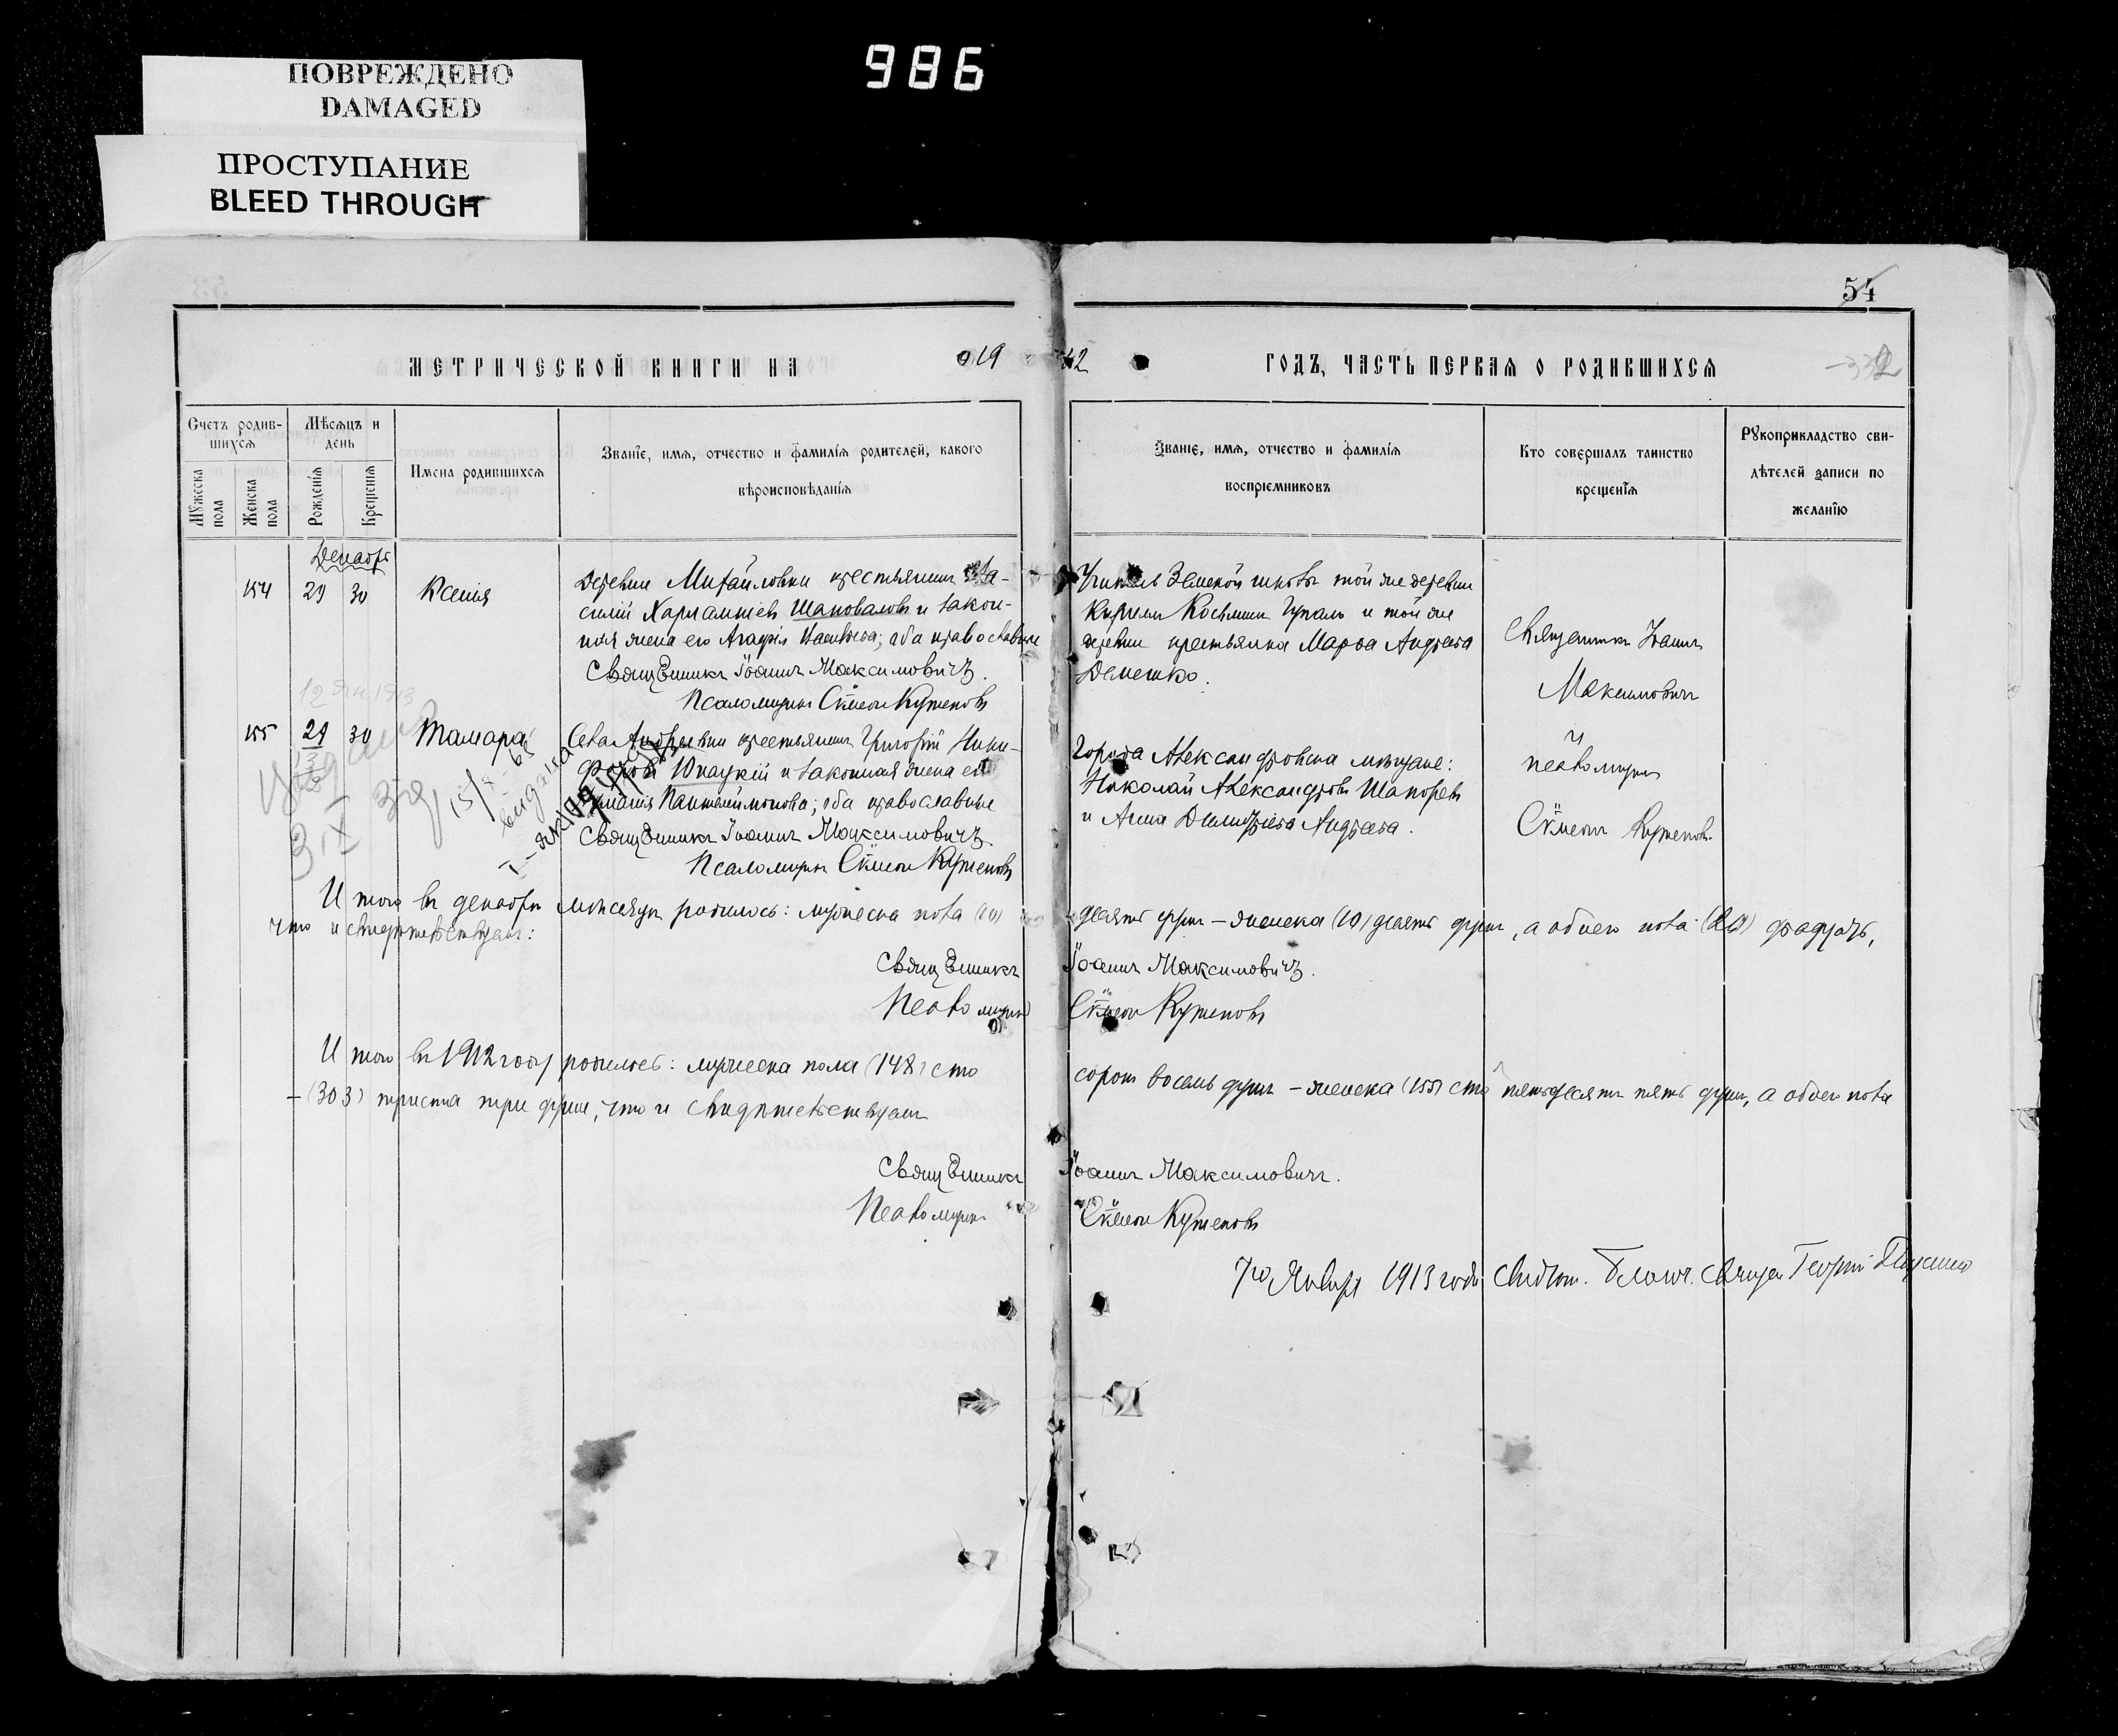 986
ПОВРЕЖДЕНО
DAMAGED
ПРОСТУПАНИЕ
BLEED THROUGH
54
МЕТРИЧЕСКОЙ КНИГИ НА 19 12 ГОДЪ, ЧАСТЬ ПЕРВАЯ О РОДИВШИХСЯ
Счетъ родив-
шихся
Мужеска пола
Женска пола
Мѣсяцъ и
день
Рожденія
Крещенія
Имена родившихся
Званіе, имя, отчество и фамилія родителей, какого
вѣроисповѣданія
Званіе, имя, отчество и фамилія
воспріемниковъ
Кто совершалъ таинство
крещенія
Рукоприкладство сви-
дѣтелей записи по
желанію
Декабрь
154 29 30 Ксенія
Деревни Михайловки крестьянинъ Ва-
силій Харлампіевъ Шаповаловъ и закон-
ная жена его Агафія; оба православные
Священникъ Іоаннъ Максимовичъ.
Псаломщикъ Сѵмеонъ Кутеповъ
Учитель Земской школы той же деревни
Косьминъ и той же
деревни крестьянка Марѳа Андреева
Демешко.
Священникъ Іоаннъ
Максимовичъ
и
псаломщикъ
Сѵмеонъ Кутеповъ.
155 29 30 Тамара
Села Андреевки крестьянинъ Григорій Ники-
форовъ и законная жена его
Пантелеимонова; оба православные
Священникъ Іоаннъ Максимовичъ.
Псаломщикъ Сѵмеонъ Кутеповъ
Города Александровска мѣщане:
Николай Александровъ
и Анна Димитріева Андреева.
Итого въ декабрѣ мѣсяцѣ родилось: мужеска пола (10) десять душъ – женска (10) десять душъ, а обоего пола (20) двадцать,
что и свидѣтельствуемъ:
Священникъ Іоаннъ Максимовичъ.
Псаломщикъ Сѵмеонъ Кутеповъ
Итого въ 1912 году родилось: мужеска пола (148) сто сорокъ восемь душъ – женска (155) сто пятьдесятъ пять душъ, а обоего пола
– (303) триста три души, что и свидѣтельствуемъ
Священникъ Іоаннъ Максимовичъ.
Псаломщикъ Сѵмеонъ Кутеповъ
7го Января 1913 года Благоч. Священ. Георгій